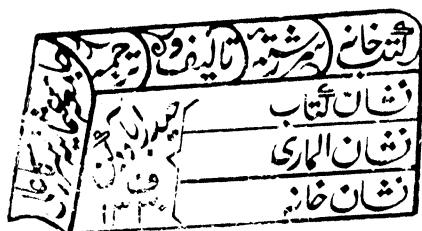 کتب خانۂ سررشتہ تالیف و ترجمہ
نشان کتاب
نشان الماری
نشان خانہ
حیدرآباد دکن
۱۳۳۰ ف